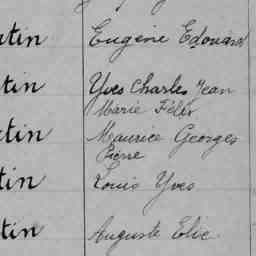 tin Eugène Edouard
tin Yves Charles Jean
Marie Félix
tin Maurice Georges
Pierre
tin Louis Yves
tin Auguste Elie